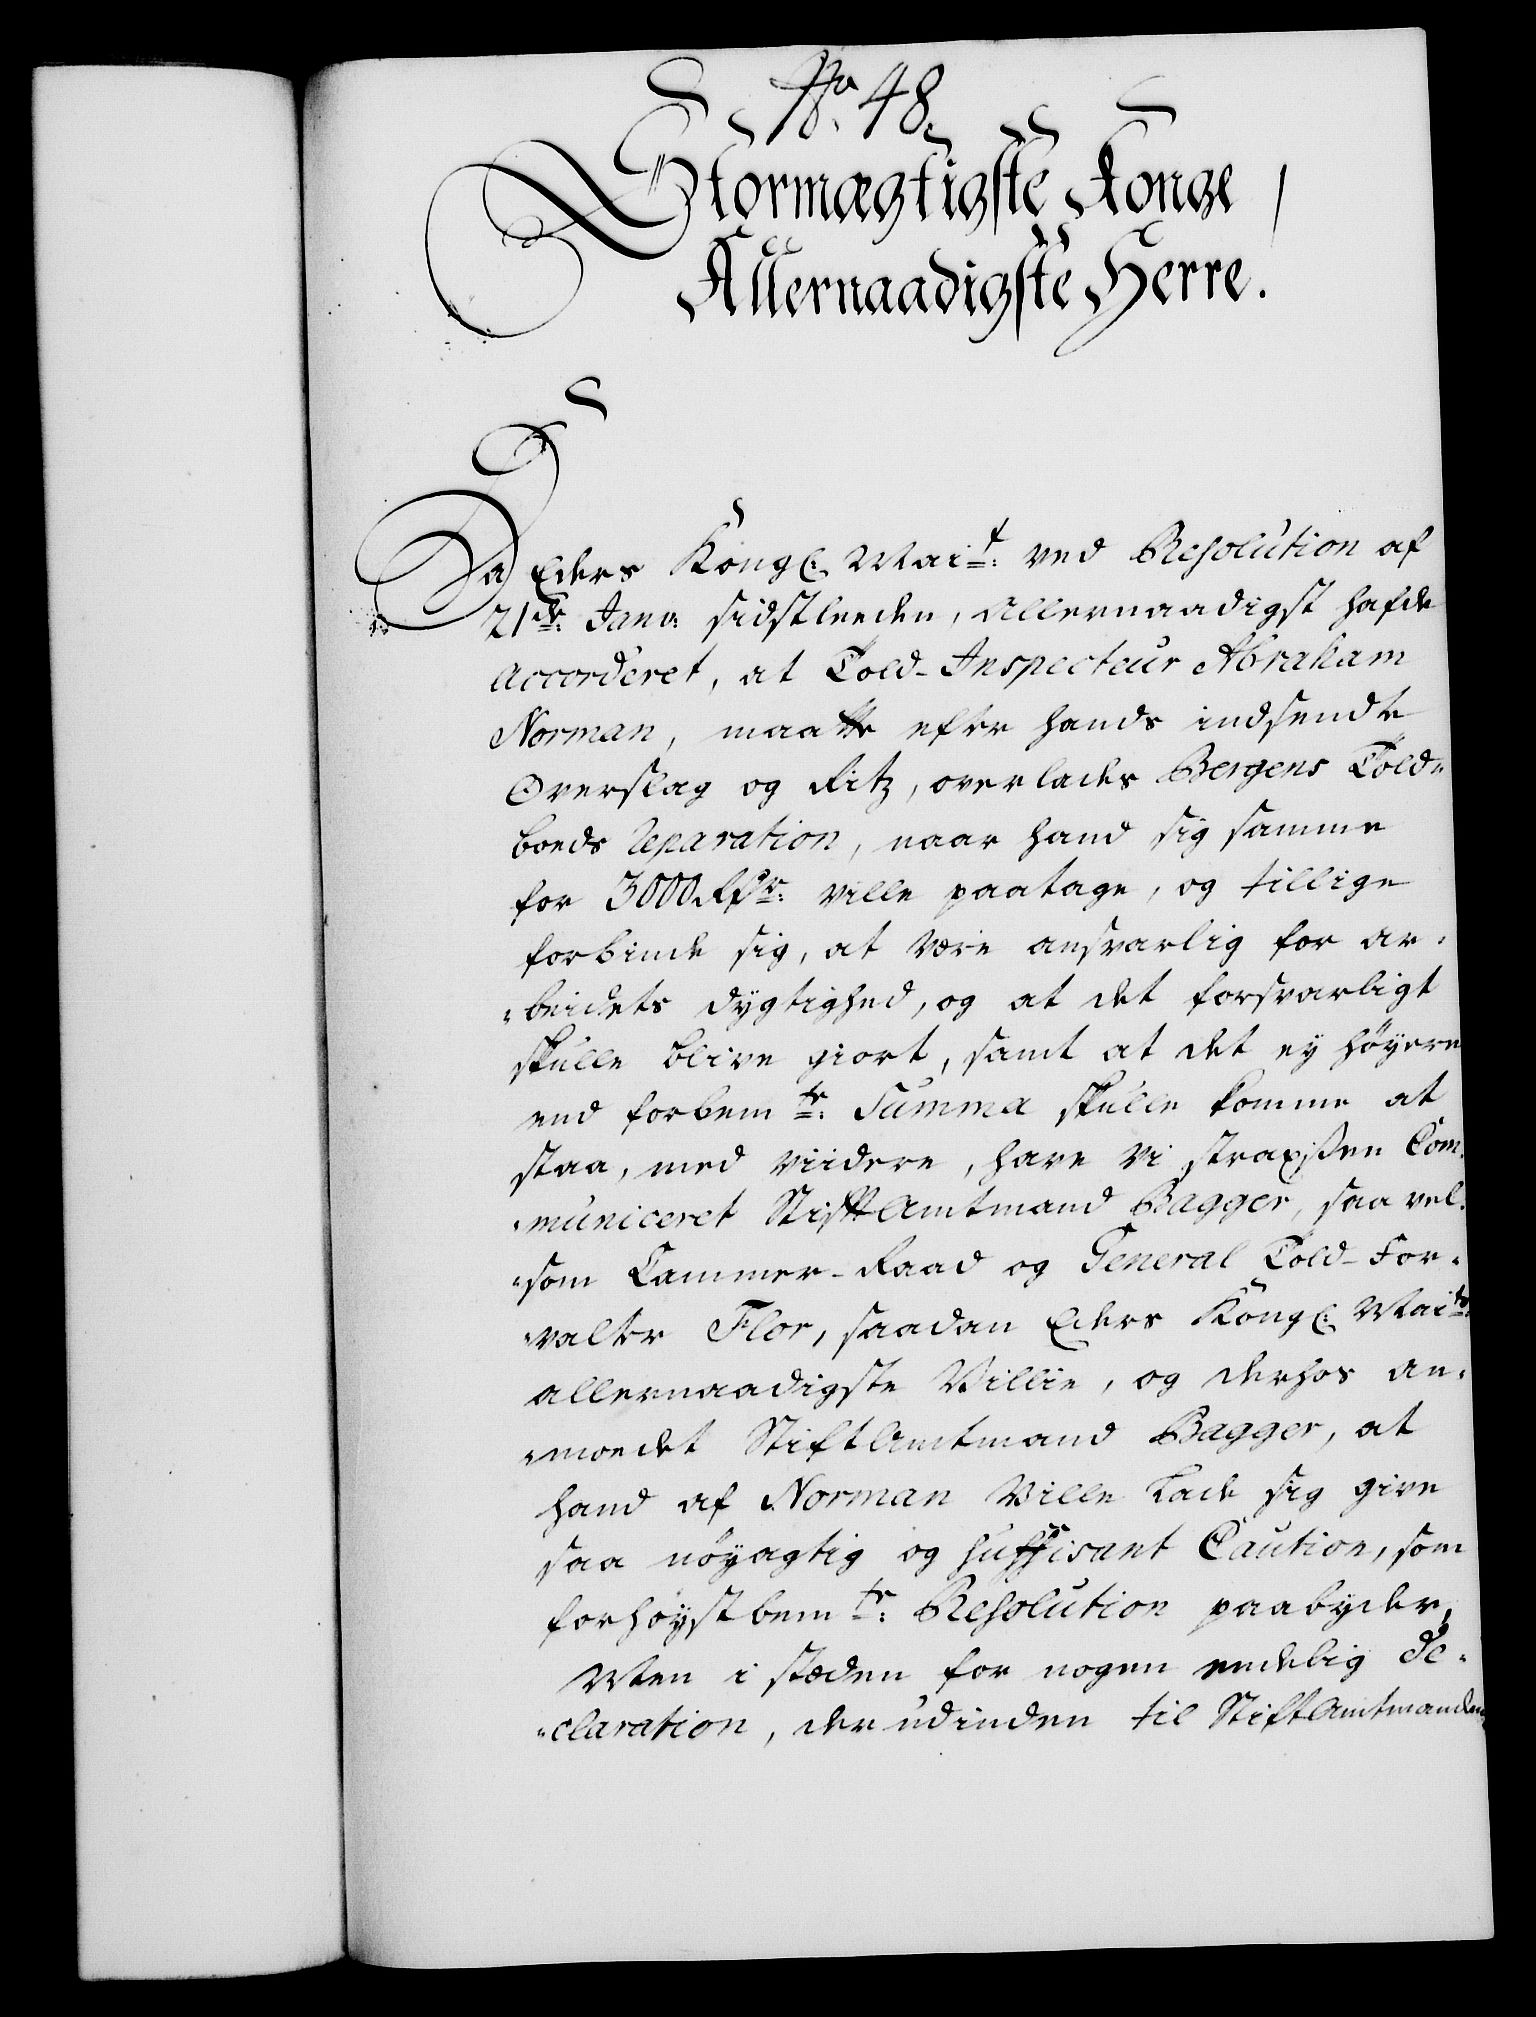 No. 48.
Stormægtigste Konge
Allernaadigste Herre!
Da Eders Kongl: Mait: ved Resolution af
21de Jano: sidstleeden, Allernaadigst hafde
accorderet, at Told-Inspecteur Abraham
Norman, maatte efter hands indsendte
Overslag og Ritz, overlades Bergens Told-
boeds Reparation, naar hand sig samme
for 3000 Rdr: ville paatage, og tillige
forbinde sig, at være ansvarlig for ar-
-beidets dygtighed, og at det forsvarligt
skulle blive giort, samt at det ey høyere
end forbemte: Summa skulle komme at
staa, med viidere, have vi strax, saavel Com-
-municeret Stiftamtmand Bagger, saa vel-
-som Cammer-Raad og General Told-For-
-valter Flor, saadan Eders Kongl: Maits:
allernaadigste Villie, og derhos an-
-moedet Stiftamtmand Bagger, at
hand af Norman Ville Lade sig give
saa nøyagtig og suffisant Caution, som
forhøystbemte: Resolution paabyder,
Men i stæden for nogen endelig De-
-claration, der udinden til Stiftamtmanden